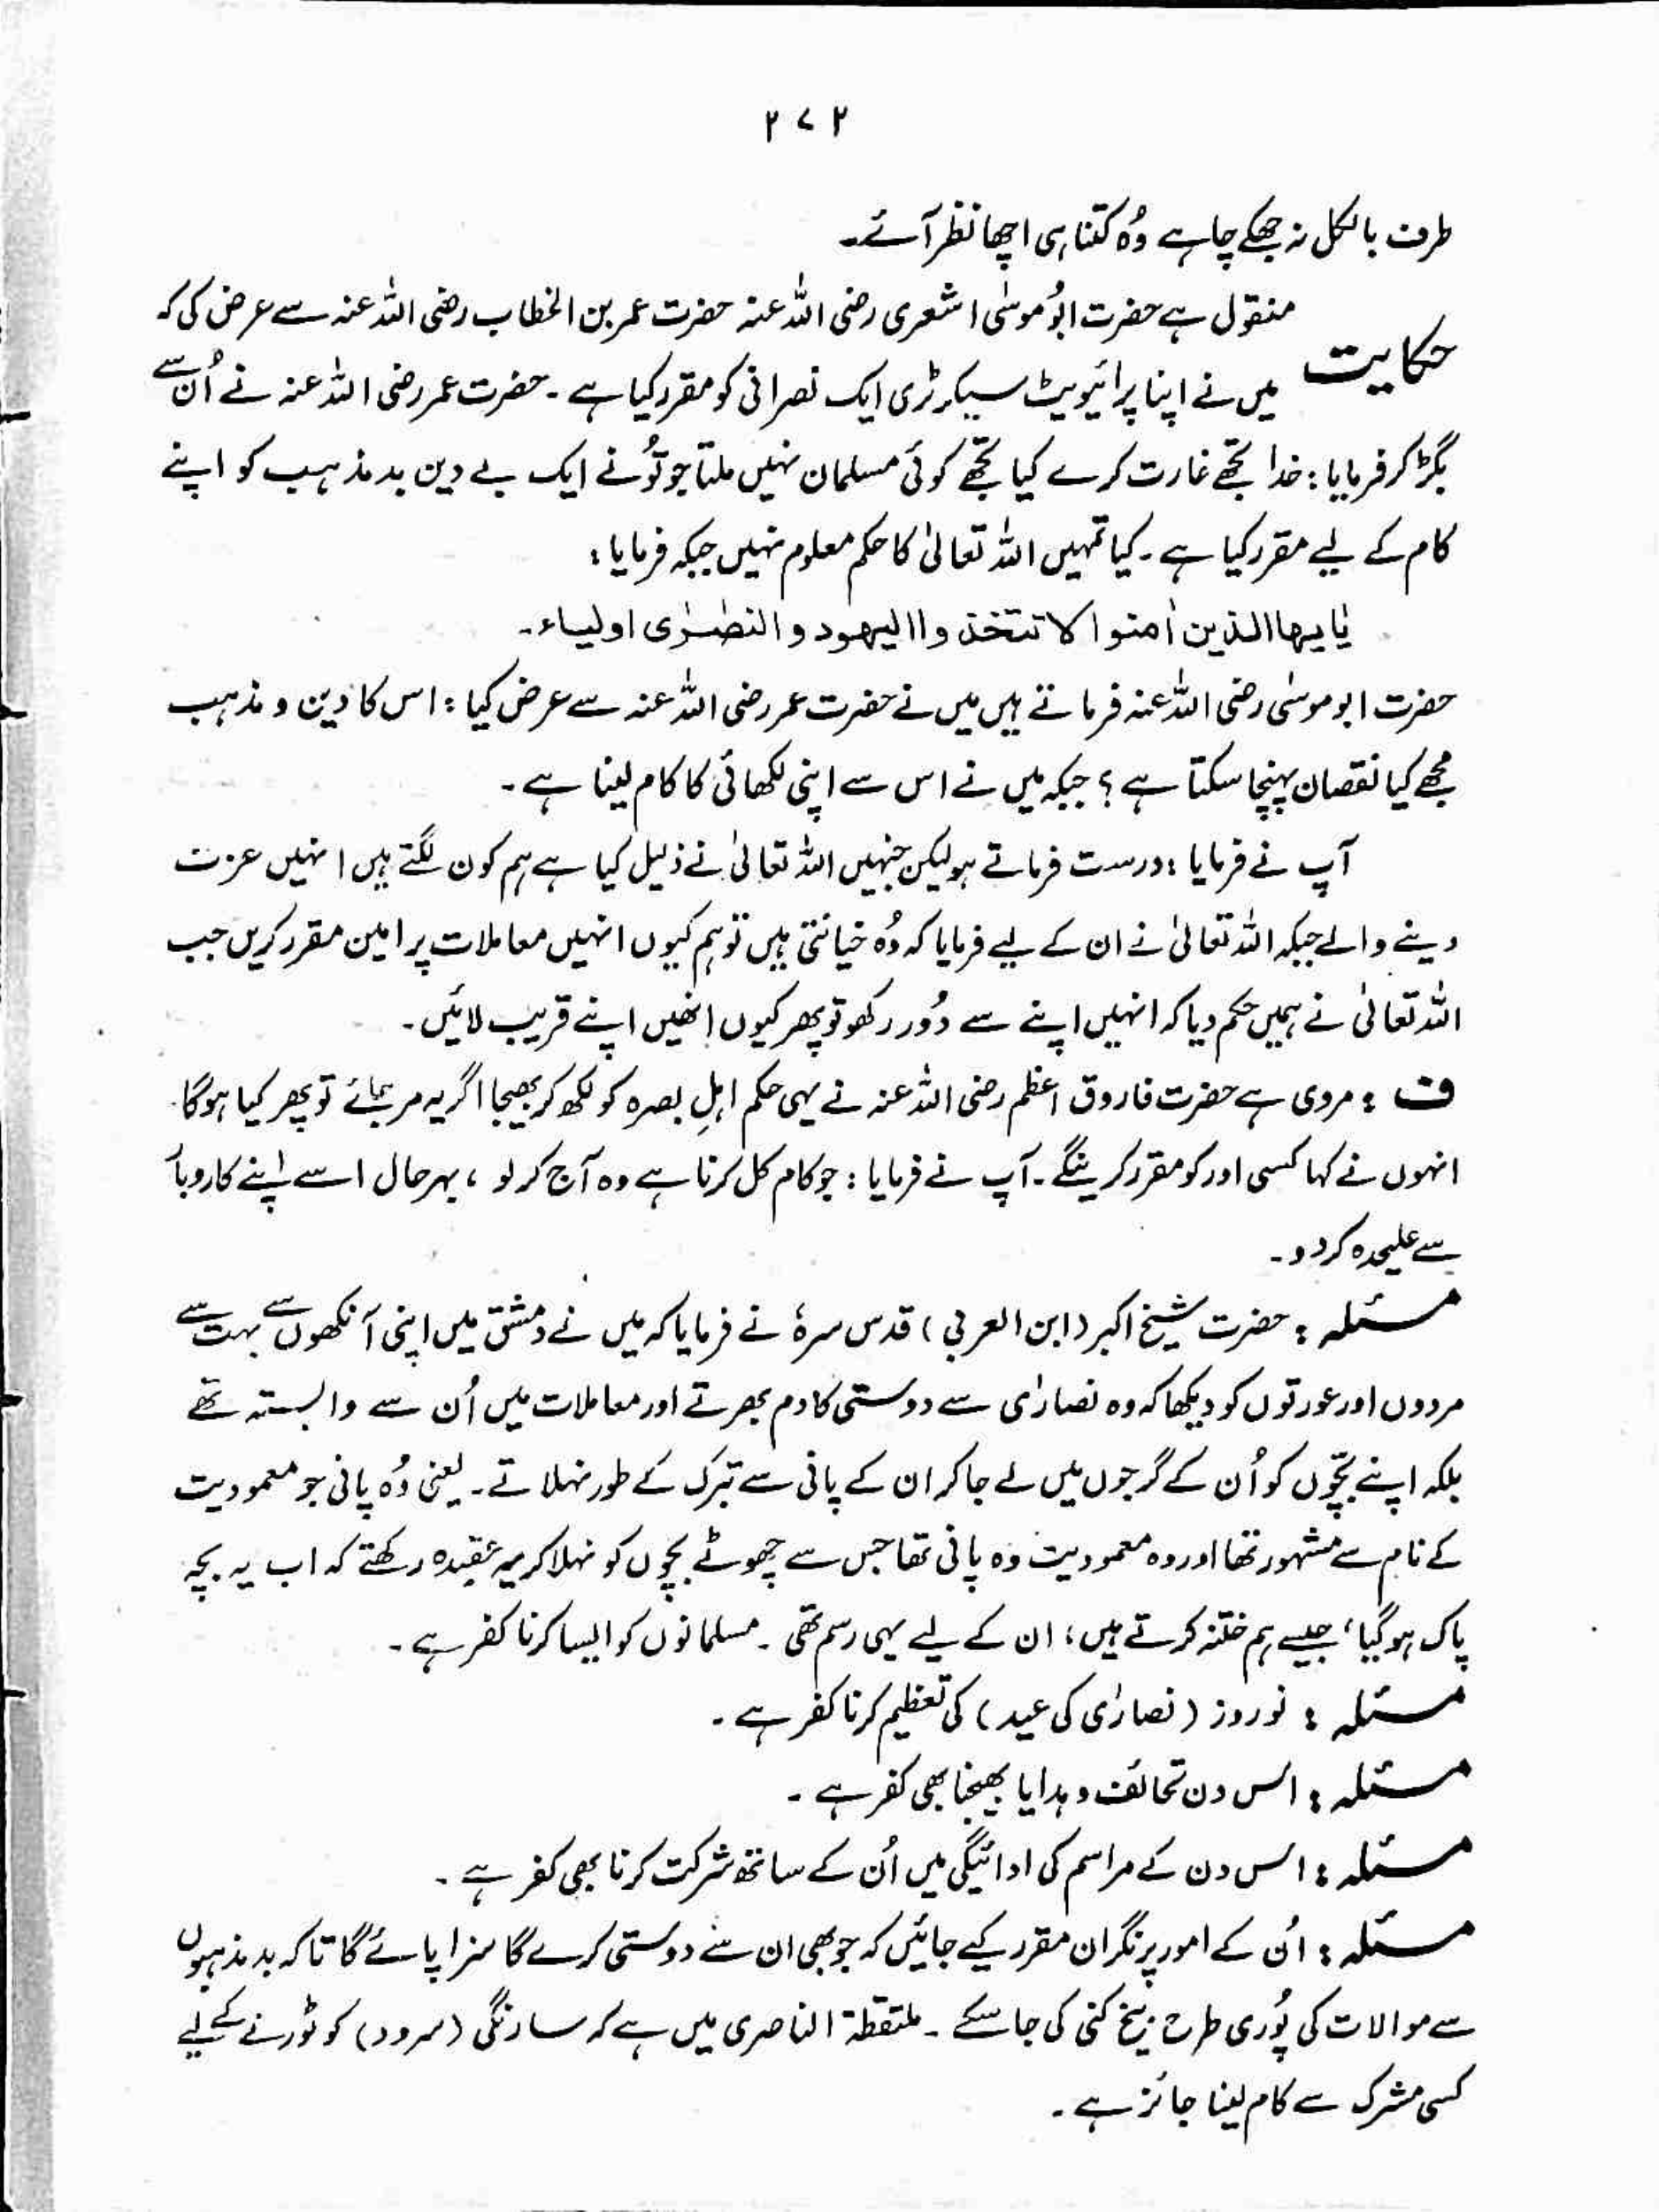 ۲۷۲
طرف بالکل نہ جھکے چاہے وُہ کتنا ہی اچھا نظر آئے۔
حکایت منقول ہے حضرت ابُو موسٰی اشعری رضی اللہ عنہ حضرت عمر بن الخطاب رضی اللہ عنہ سے عرض کی کہ
میں نے اپنا پرائیویٹ سیکرٹری ایک نصرانی کو مقرر کیا ہے ۔ حضرت عمر رضی اللہ عنہ نے اُن سے
بگڑ کر فرمایا : خدا تجھے غارت کرے کیا تجھے کوئی مسلمان نہیں ملتا جو تُو نے ایک بے دین بد مذہب کو اپنے
کام کے لیے مقرر کیا ہے ۔ کیا تمہیں اللہ تعالیٰ کا حکم معلوم نہیں جبکہ فرمایا :
یٰایہا الذین اٰمنوا لا تتخذوا الیہود و النصٰرٰی اولیاء۔
حضرت ابو موسٰی رضی اللہ عنہ فرماتے ہیں میں نے حضرت عمر رضی اللہ عنہ سے عرض کیا : اس کا دین و مذہب
مجھے کیا نقصان پہنچا سکتا ہے ؟ جبکہ میں نے اس سے اپنی لکھائی کا کام لینا ہے ۔
آپ نے فرمایا : درست فرماتے ہو لیکن جنہیں اللہ تعالیٰ نے ذلیل کیا ہے ہم کون لگتے ہیں انہیں عزت
دینے والے جبکہ اللہ تعالیٰ نے ان کے لیے فرمایا کہ وُہ خیانتی ہیں تو ہم کیوں انہیں معاملات پر امین مقرر کریں جب
اللہ تعالیٰ نے ہمیں حکم دیا کہ انہیں اپنے سے دُور رکھو تو پھر کیوں انھیں اپنے قریب لائیں ۔
ف : مروی ہے حضرت فاروق اعظم رضی اللہ عنہ نے یہی حکم اہلِ بصرہ کو لکھ کر بھیجا اگر یہ مر جائے تو پھر کیا ہوگا۔
انہوں نے کہا کسی اور کو مقرر کرینگے ۔ آپ نے فرمایا : جو کام کل کرنا ہے وہ آج کر لو ، بہرحال اسے اپنے کاروبار
سے علیحدہ کر دو ۔
مسئلہ : حضرت شیخ اکبر (ابن العربی) قدس سرہٗ نے فرمایا کہ میں نے دمشق میں اپنی آنکھوں سے بہت سے
مردوں اور عورتوں کو دیکھا کہ وہ نصارٰی سے دوستی کا دم بھرتے اور معاملات میں اُن سے وابستہ تھے
بلکہ اپنے بچّوں کو اُن کے گرجوں میں لے جا کر ان کے پانی سے تبرک کے طور نہلاتے ۔ یعنی وُہ پانی جو معمودیت
کے نام سے مشہور تھا اور وہ معمودیت وہ پانی تھا جس سے چھوٹے بچوں کو نہلا کر یہ عقیدہ رکھتے کہ اب یہ بچہ
پاک ہو گیا، جیسے ہم ختنہ کرتے ہیں، ان کے لیے یہی رسم تھی ۔ مسلمانوں کو ایسا کرنا کفر ہے ۔
مسئلہ : نوروز (نصارٰی کی عید) کی تعظیم کرنا کفر ہے ۔
مسئلہ : اس دن تحائف و ہدایا بھیجنا بھی کفر ہے ۔
مسئلہ : اس دن کے مراسم کی ادائیگی میں اُن کے ساتھ شرکت کرنا بھی کفر ہے ۔
مسئلہ : اُن کے امور پر نگران مقرر کیے جائیں کہ جو بھی ان سے دوستی کرے گا سزا پائے گا تاکہ بد مذہبوں
سے موالات کی پُوری طرح بیخ کنی کی جا سکے ۔ ملتقطۃ الناصری میں ہے کہ سارنگی (سرود) کو توڑنے کے لیے
کسی مشرک سے کام لینا جائز ہے ۔